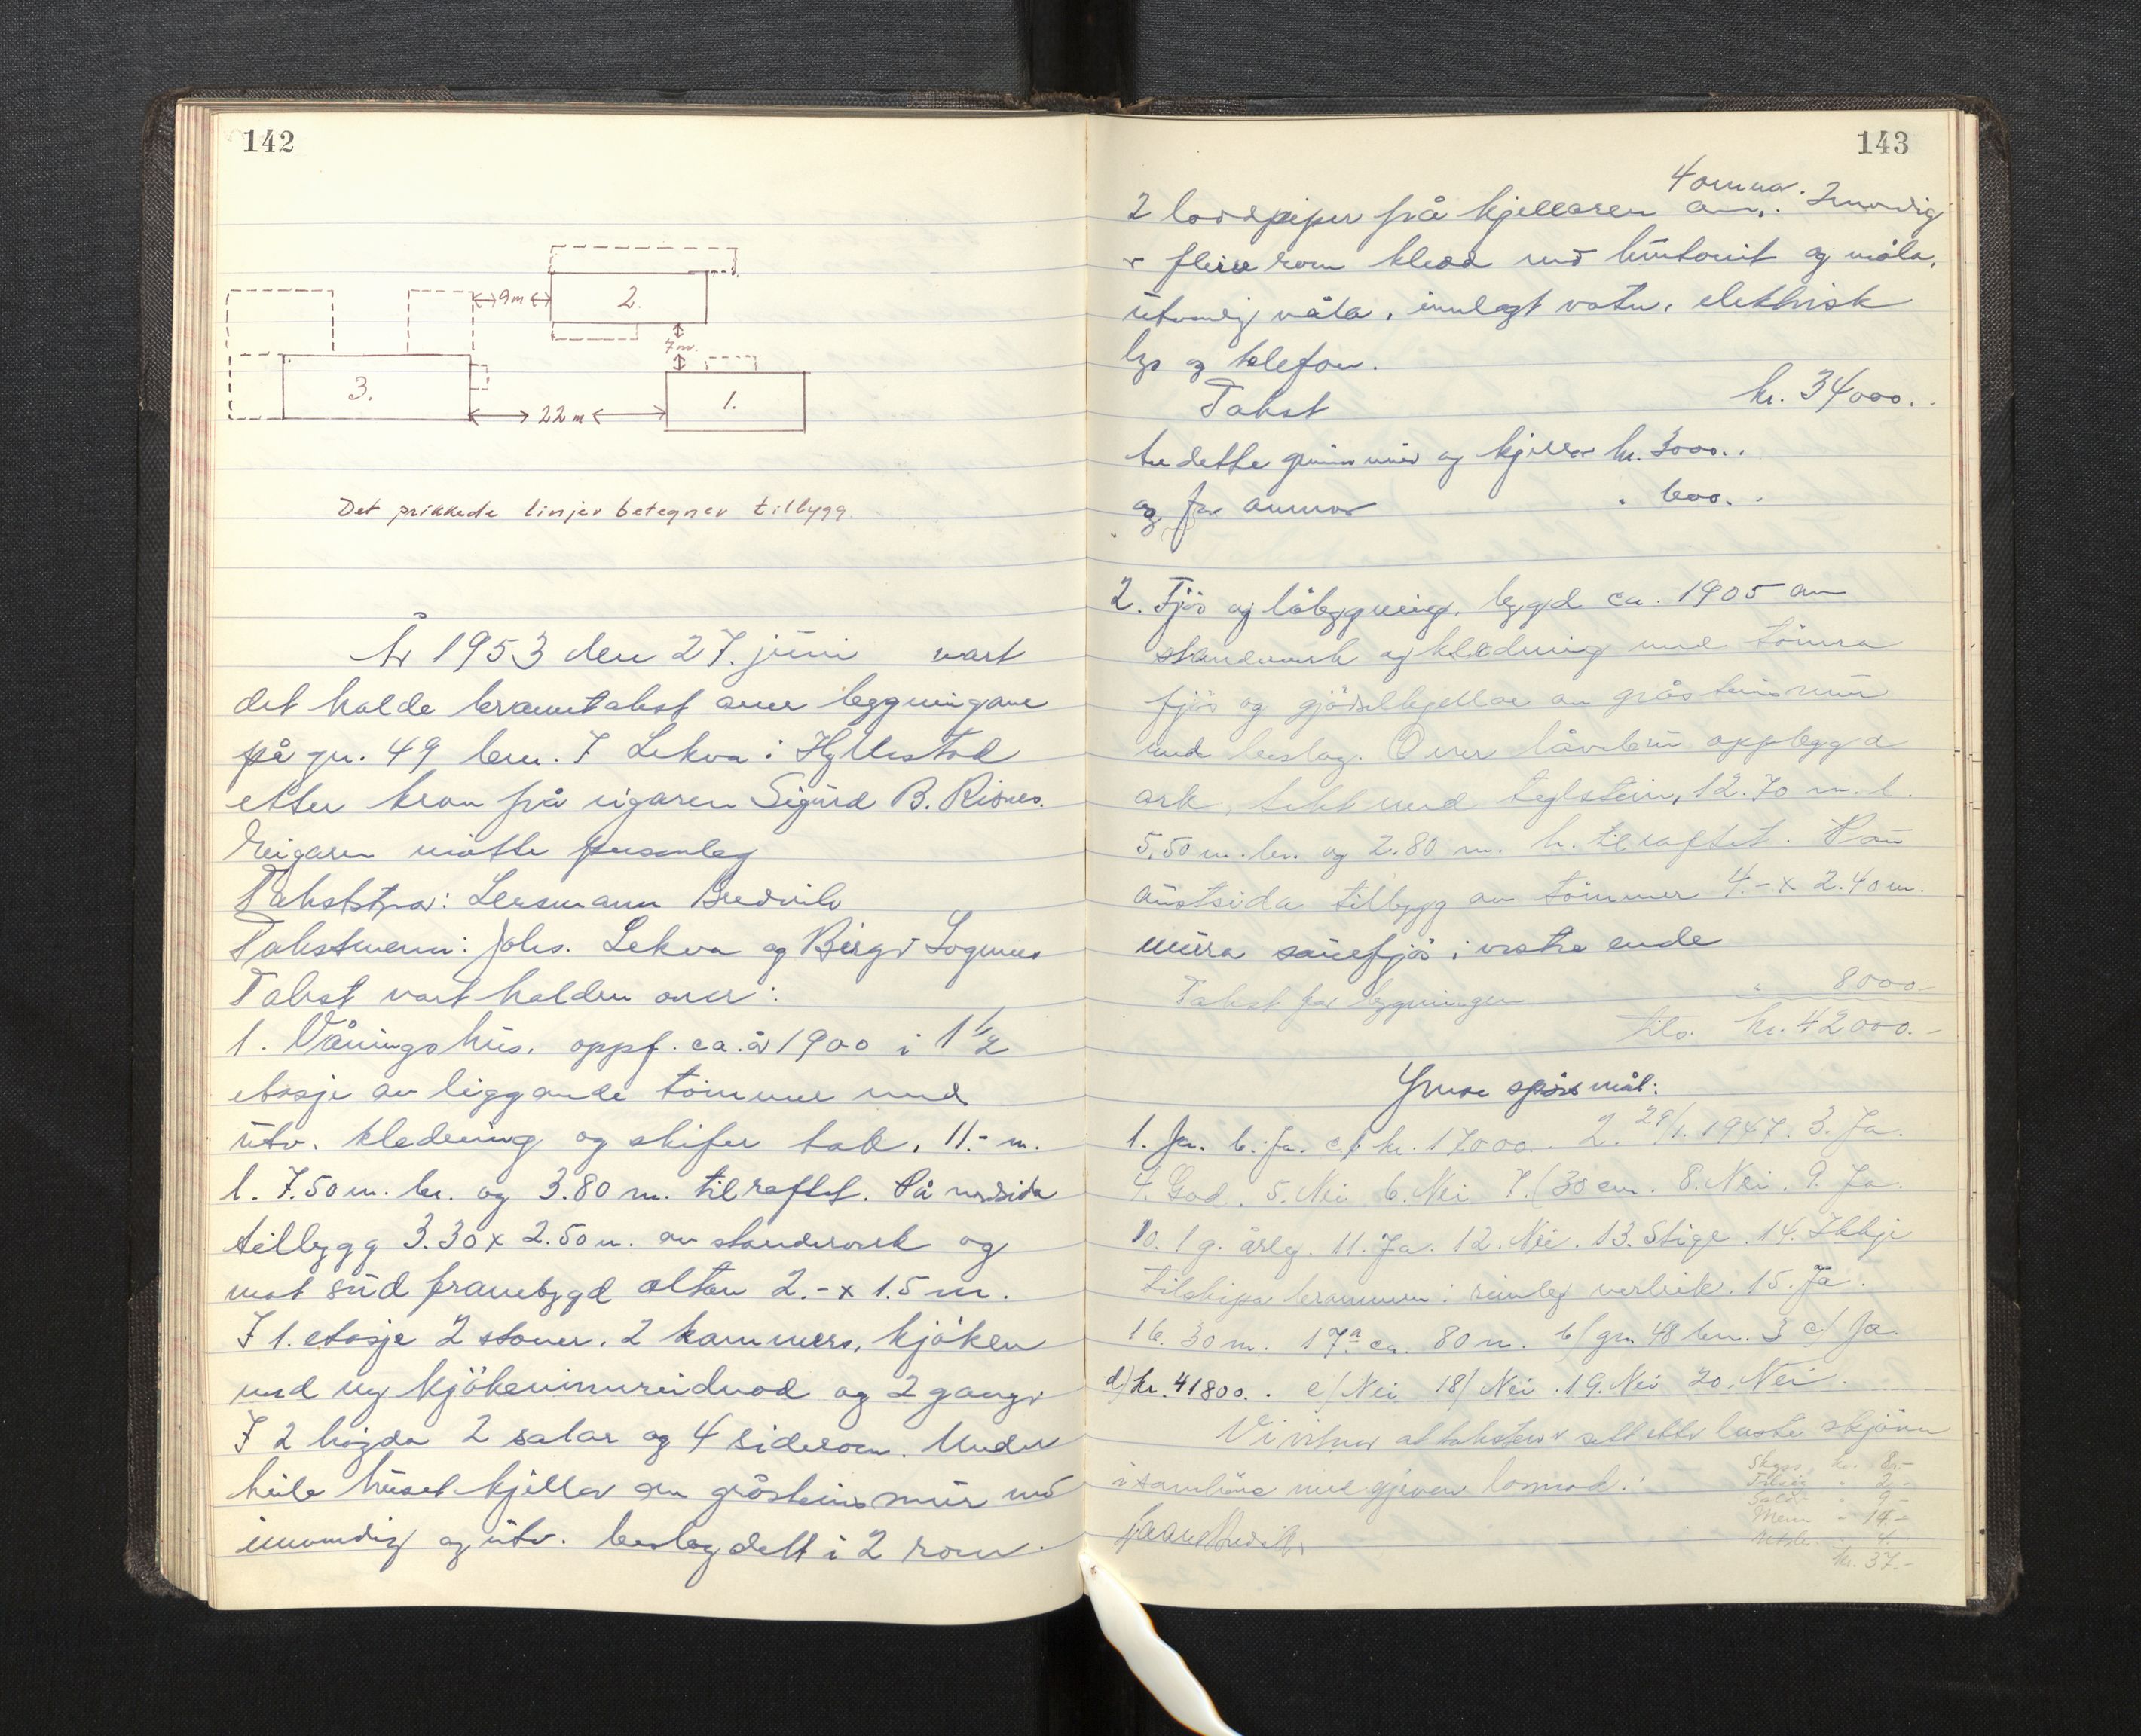 142
9m
2.
7m.
3.
22m
1.
Det prikkede linjer betegner tilbygg.
År 1953 den 27. juni vart
det halde branntakst over bygningane
på gn. 49 bnr. 7 Lekva i Hyllestad
etter krav frå eigaren Sigurd B. Risnes.
Eigaren møtte personleg
Takststyrar: Lensmann
Takstmenn: Johs. Lekva og Birger
Takst vart halden over:
1. Våningshus, oppf. ca. år 1900 i 1 1/2
etasje av liggande tømmer med
utv. kledning og skifer tak, 11.- m.
l. 7.50 m. br. og 3.80 m. til raftet. På nordsida
tilbygg 3.30 x 2.50 m. av standerverk og
mot sud frambygd altan 2.- x 1.5 m.
I 1. etasje 2 stover, 2 kammers, kjøken
med ny kjøkeninnreidnad og 2 gangar
I 2 høgda 2 salar og 4 siderom. Under
heile huset kjellar av gråsteinsmur med
innvendig og utv. beslag delt i 2 rom.
143
4 omnar.
2 loddpiper frå kjellaren Innvendig
er fleire rom kledd med huntonit og måla,
utvendig måla, innlagt vatn, elektrisk
lys og telefon.
Takst kr. 34000.-
av dette grunnmur og kjellar kr. 3000.-
og for omnar " 600.-
2. Fjøs og løbygning, bygd ca. 1905 av
standerverk og kledning med tømra
fjøs og gjødselkjellar av gråsteinsmur
med beslag. Over låvebru oppbygd
ark, tekt med teglstein, 12.70 m. l.
5.50 m. br. og 2.80 m. h. til raftet. På
austsida tilbygg av tømmer 4.- x 2.40 m.
mura sauefjøs i vestre ende
Takst for bygningen " 8000.-
tils. kr. 42000.-
Ymse spørsmål:
1. Ja. b. Ja. c/ kr. 17000.- 2. 29/1. 1947. 3. Ja.
4. God. 5. Nei 6. Nei 7. (30 cm. 8. Nei. 9. Ja.
10. 1 g. årleg. 11. Ja. 12. Nei. 13. Stige. 14. Ikkje
tilskipa brannvern i rimeleg verleik. 15. Ja.
16. 30 m. 17a ca. 80 m. b/ gn. 48 bnr. 3 c/ Ja.
d) kr. 41800.- e/ Nei 18/ Nei. 19. Nei 20. Nei.
Vi vitnar at taksten er sett etter beste skjønn
i samhøve med gjeven lovnad.
Skyss kr. 8.-
2.-
9.-
Menn " 14.-
4.-
kr. 37.-